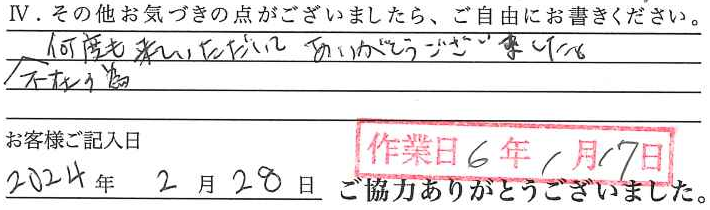 Ⅳ．その他お気づきの点がございましたら、ご自由にお書きください。
何度も来ていただいて ありがとうございました。
不在の為
お客様ご記入日
作業日 6年 1月17日
2024年 2月28日
ご協力ありがとうございました。